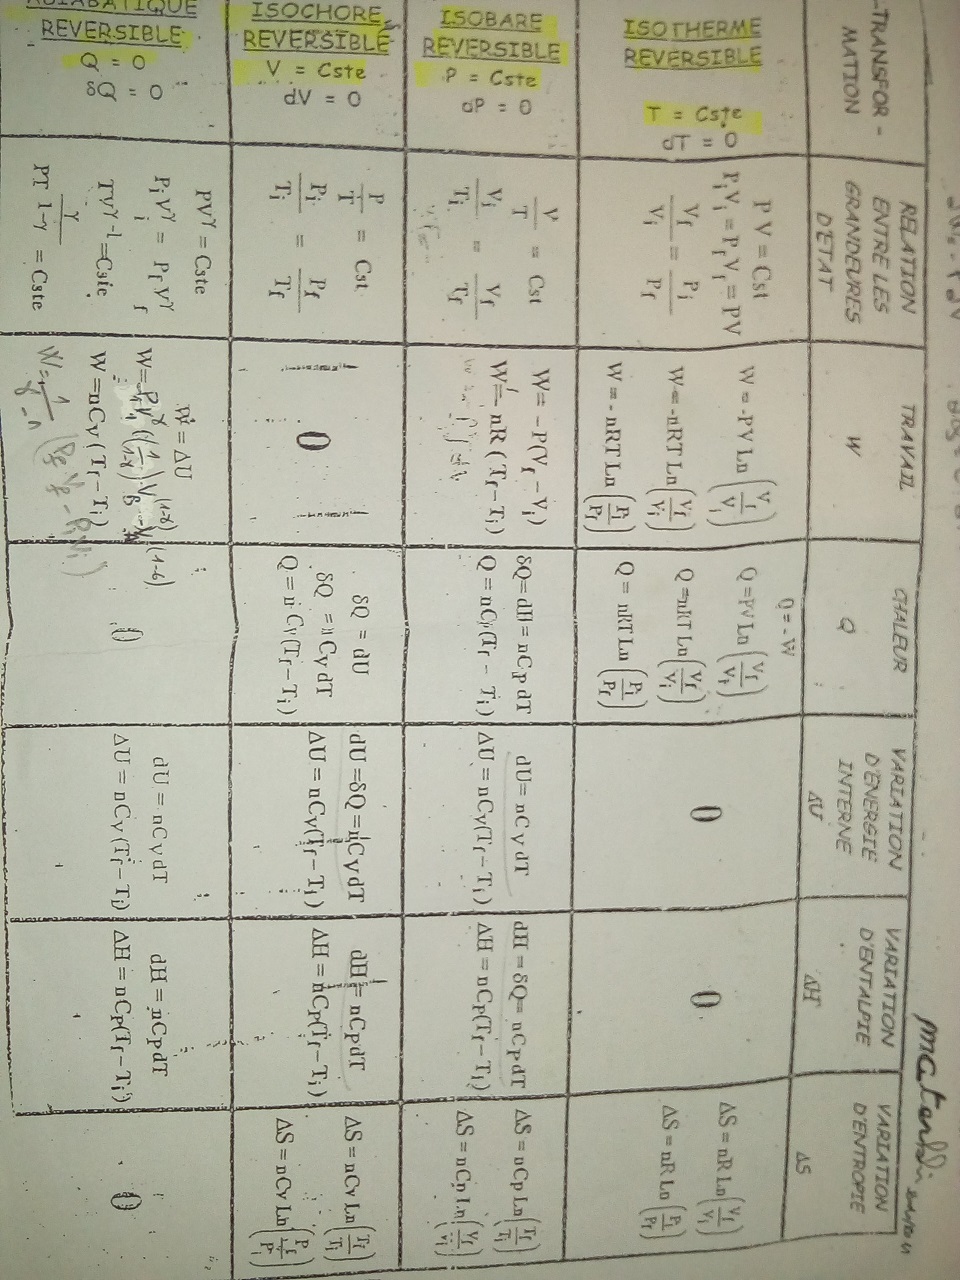 TRANSFOR-
MATION
RELATION
ENTRE LES
GRANDEURES
D'ETAT
TRAVAIL
W
CHALEUR
Q
VARIATION
D'ENERGIE
INTERNE
ΔU
VARIATION
D'ENTALPIE
ΔH
VARIATION
D'ENTROPIE
ΔS
ISOTHERME
REVERSIBLE
T = Cste
dT = 0
P V = Cst
PiVi = PfVf = PV
Vf/Vi = Pi/Pf
W = -PV Ln (Vf/Vi)
W = -nRT Ln (Vf/Vi)
W = -nRT Ln (Pi/Pf)
Q = -W
Q = PV Ln
Q = nRT Ln (Vf/Vi)
Q = nRT Ln (Pi/Pf)
0
0
ΔS = nR Ln (Vf/Vi)
ΔS = nR Ln (Pi/Pf)
ISOBARE
REVERSIBLE
P = Cste
dP = 0
V/T = Cst
Vi/Ti = Vf/Tf
W = -P(Vf - Vi)
W = - nR (Tf - Ti)
δQ = dH = nCp dT
Q = nC (Tf - Ti)
dU = nCv dT
ΔU = nCv(Tf - Ti)
dH = δQ = nCp dT
ΔH = nCp(Tf - Ti)
ΔS = nCp Ln (Tf/Ti)
ΔS = nCp Ln (Vf/Vi)
ISOCHORE
REVERSIBLE
V = Cste
dV = 0
P/T = Cst
Pi/Ti = Pf/Tf
0
δQ = dU
δQ = nCv dT
Q = nCv(Tf - Ti)
dU = δQ = nCv dT
ΔU = nCv(Tf - Ti)
dH = nCp dT
ΔH = nCp(Tf - Ti)
ΔS = nCv Ln (Tf/Ti)
ΔS = nCv Ln (Pf/Pi)
ADIABATIQUE
REVERSIBLE
Q = 0
δQ = 0
PV^γ = Cste
PiVi^γ = PfVf^γ
TV^γ-1 = Cste
PT^γ/1-γ = Cste
W = ΔU
W = nCv (Tf - Ti)
0
dU = nCv dT
ΔU = nCv (Tf - Ti)
dH = nCp dT
ΔH = nCp(Tf - Ti)
0